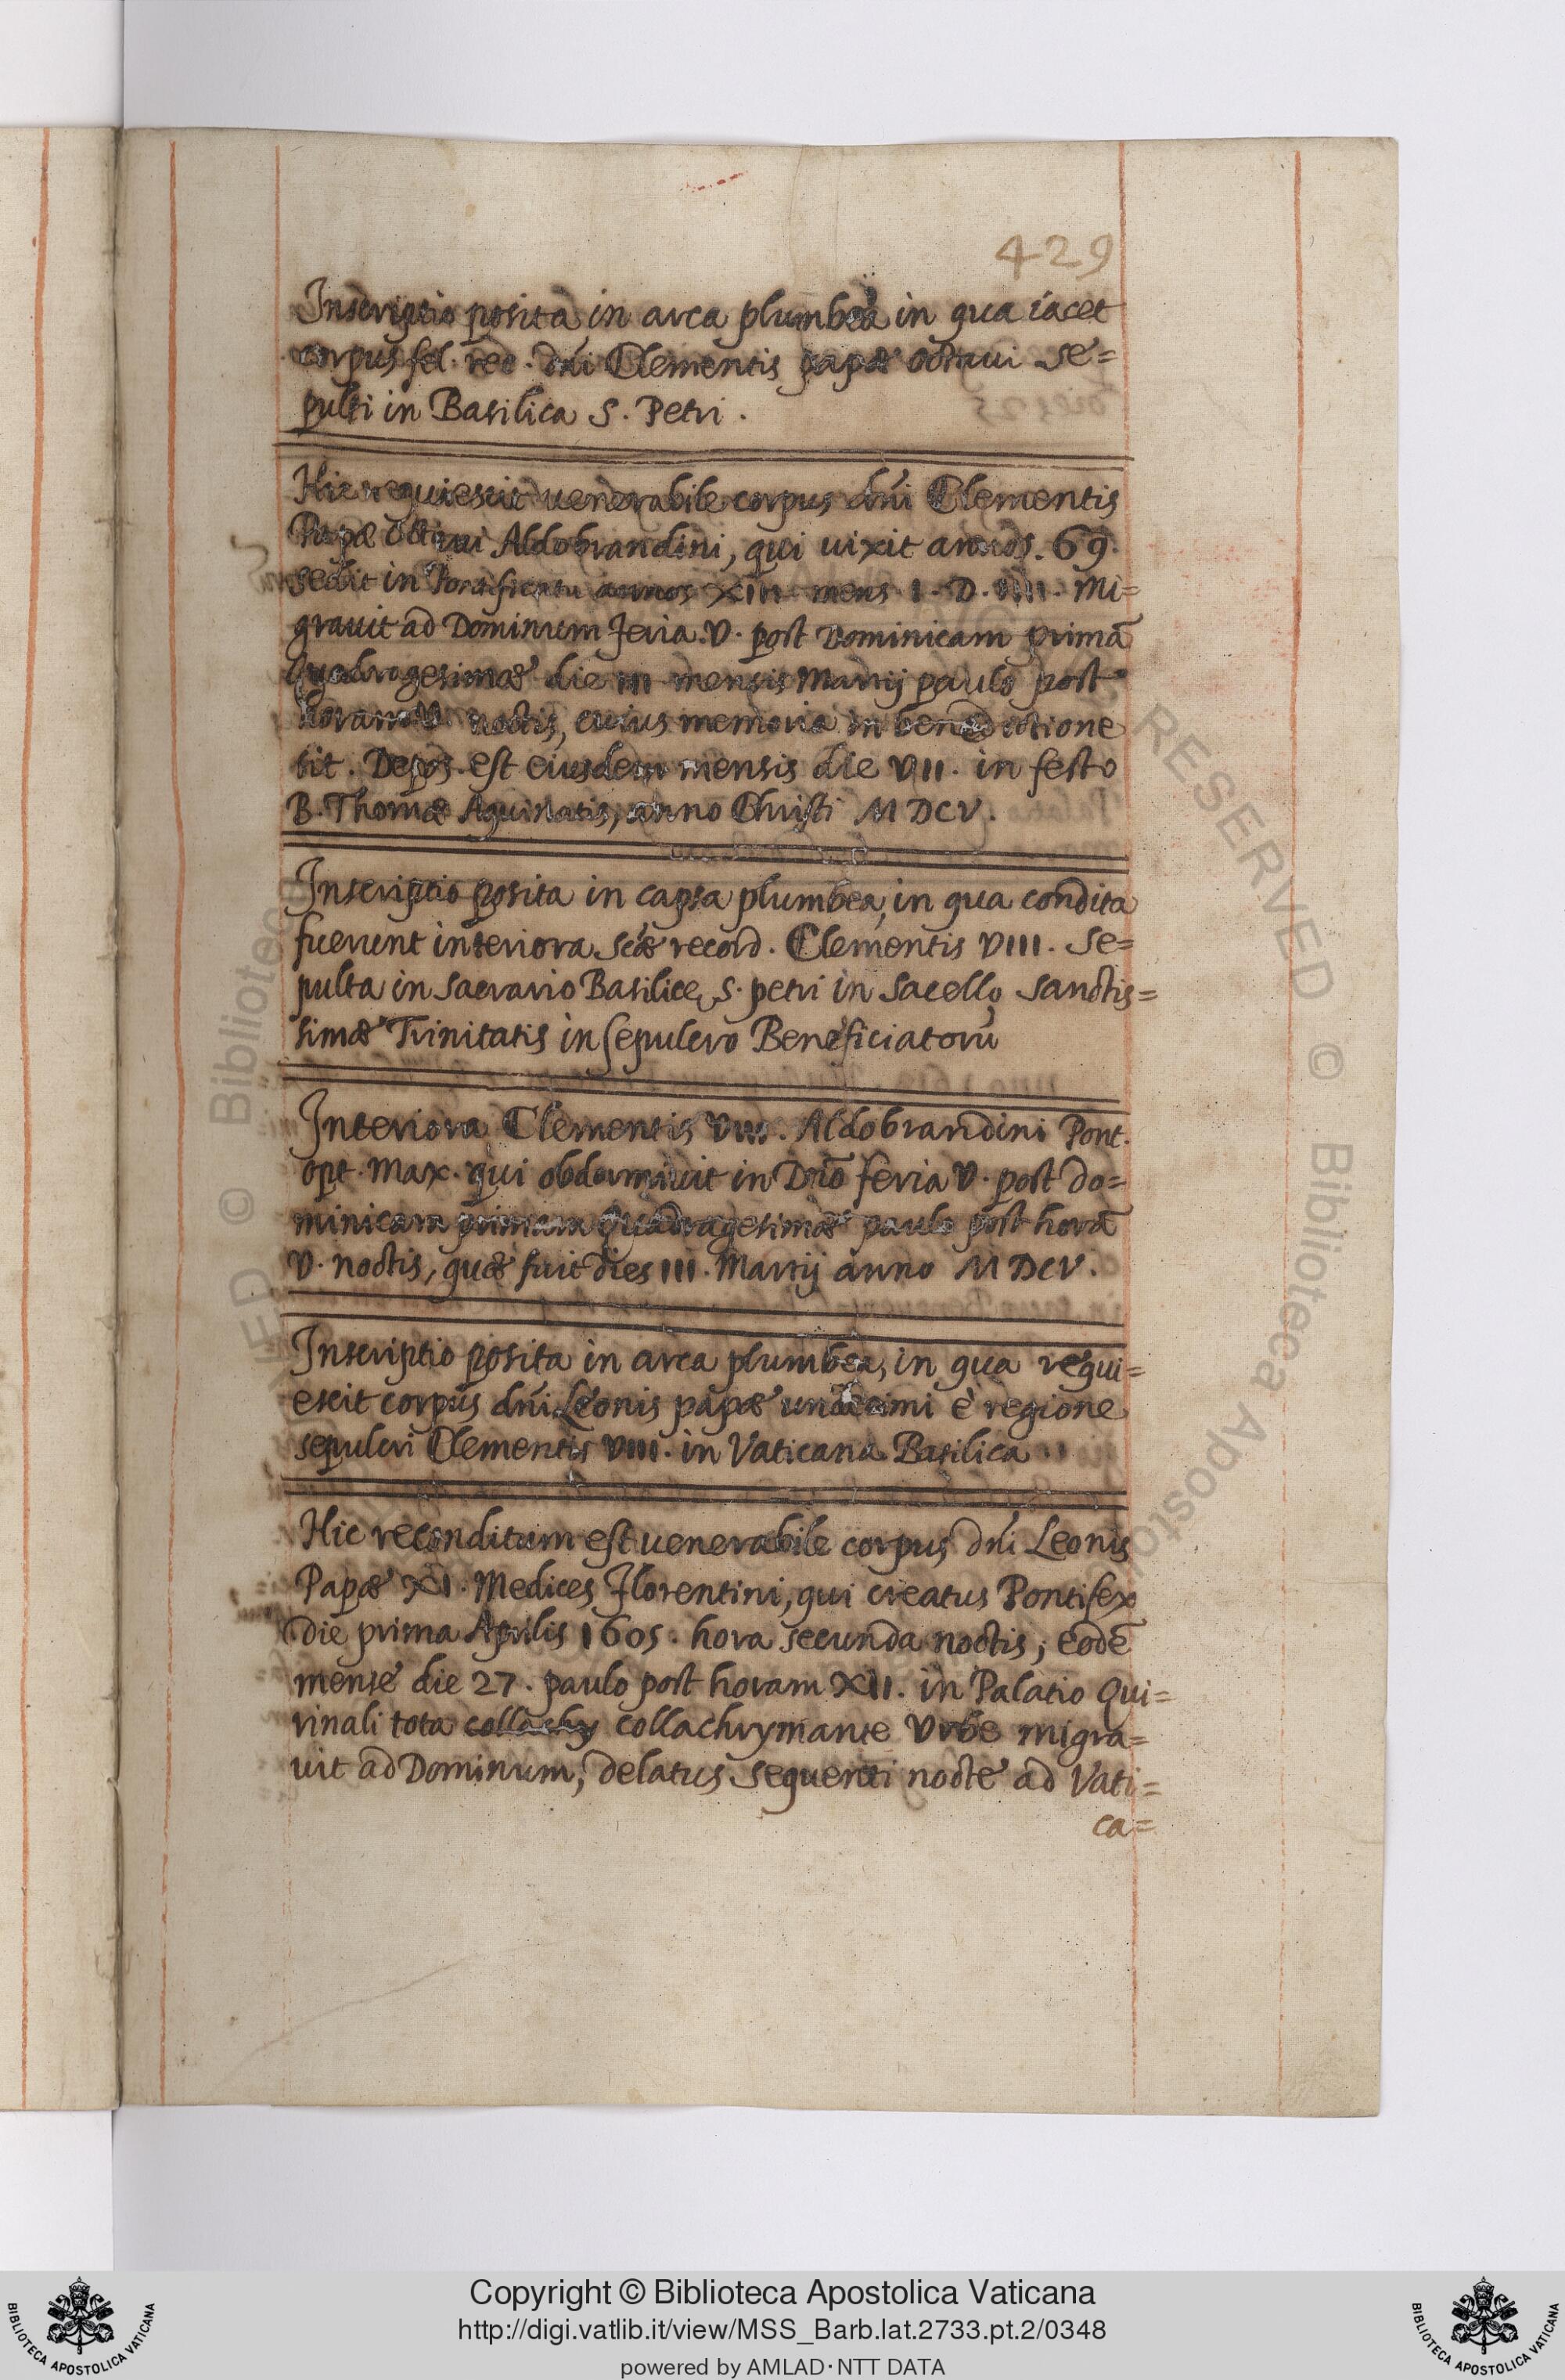 429
Inscriptio posita in arca plumbea in qua iacet
corpus fel. rec. dñi Clementis papæ octaui se=
pulti in Basilica S. Petri.
Hic requiescit uenerabile corpus dñi Clementis
Papæ Octaui Aldobrandini, qui uixit annos. 69.
sedit in Pontificatu annos XIII mens. I. D. VIIII. Mi=
grauit ad Dominum feria. V. post Dominicam primā
Quadragesimæ die III mensis Martij paulo post
horam V. noctis, cuius memoria in benedictione
sit. Depos. est eiusdem mensis die VII. in festo
B. Thomæ Aquinatis, anno Christi MDCV.
Inscriptio posita in capsa plumbea, in qua condita
fuerunt interiora scæ record. Clementis VIII. se=
pulta in sacrario Basilicę S. petri in sacello sanctis=
simæ Trinitatis in sepulcro Beneficiatorū
Interiora Clementis VIII. Aldobrandini Pont.
opt. Max. qui obdormiuit in Dño feria V. post do=
minicam primam quadragesimæ paulo post horā
V. noctis, quæ fuit dies III. Martij anno MDCV.
Inscriptio posita in arca plumbea, in qua requi=
escit corpus dñi Leonis papæ undecimi è regione
sepulcri Clementis VIII. in Vaticana Basilica
Hic reconditum est uenerabile corpus dñi Leonis
Papæ XI. Medices Florentini, qui creatus Pontifex
die prima Aprilis 1605. hora secunda noctis, eodē
mense die 27. paulo post horam XII. in Palatio Qui=
rinali tota collachy collachrymante Vrbe migra=
uit ad Dominum, delatus sequenti nocte ad Vati=
ca=
RESERVED © Biblioteca Apostolica
VED © Biblioteca
Copyright © Biblioteca Apostolica Vaticana
http://digi.vatlib.it/view/MSS_Barb.lat.2733.pt.2/0348
powered by AMLAD·NTT DATA
BIBLIOTECA APOSTOLICA VATICANA
BIBLIOTECA APOSTOLICA VATICANA